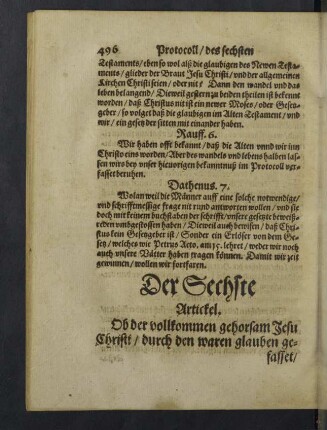 496 Protocoll / des sechsten
Testaments / eben so wol alß die glaubigen des Newen Testa-
ments / glieder der Braut Jesu Christi / vnd der allgemeinen
Kirchen Christi seien / oder nit? Dann den wandel vnd das
leben belangend / Dieweil gestern zu beiden theilen ist bekennt
worden / daß Christus nit ist ein newer Moses / oder Gesetz-
geber / so volget daß die glaubigen im Alten Testament / vnd
wir / ein gesetz der sitten mit einander haben.
Rauff. 6.
Wir haben offt bekannt / daß die Alten vnnd wir inn
Christo eins worden / Aber des wandels vnd lebens halben las-
sen wirs bey vnser hieuorigen bekanntnuß im Protocoll ver-
fasset beruhen.
Dathenus. 7.
Wolan weil die Männer auff eine solche notwendige /
vnd schrifftmessige frage nit rund antworten wollen / vnd sie
doch mit keinem buchstaben der schrifft / vnsere gesetzte beweiß-
reden vmbgestossen haben / Dieweil auch bewisen / daß Chri-
stus kein Gesetzgeber ist / Sonder ein Erlöser von dem Ge-
setz / welches wie Petrus Acto. am 15. lehret / weder wir noch
auch vnsere Vätter haben tragen können. Damit wir zeit
gewinnen / wollen wir fortfaren.
Der Sechste
Artickel.
Ob der vollkommen gehorsam Jesu
Christi / durch den waren glauben ge-
fasset /